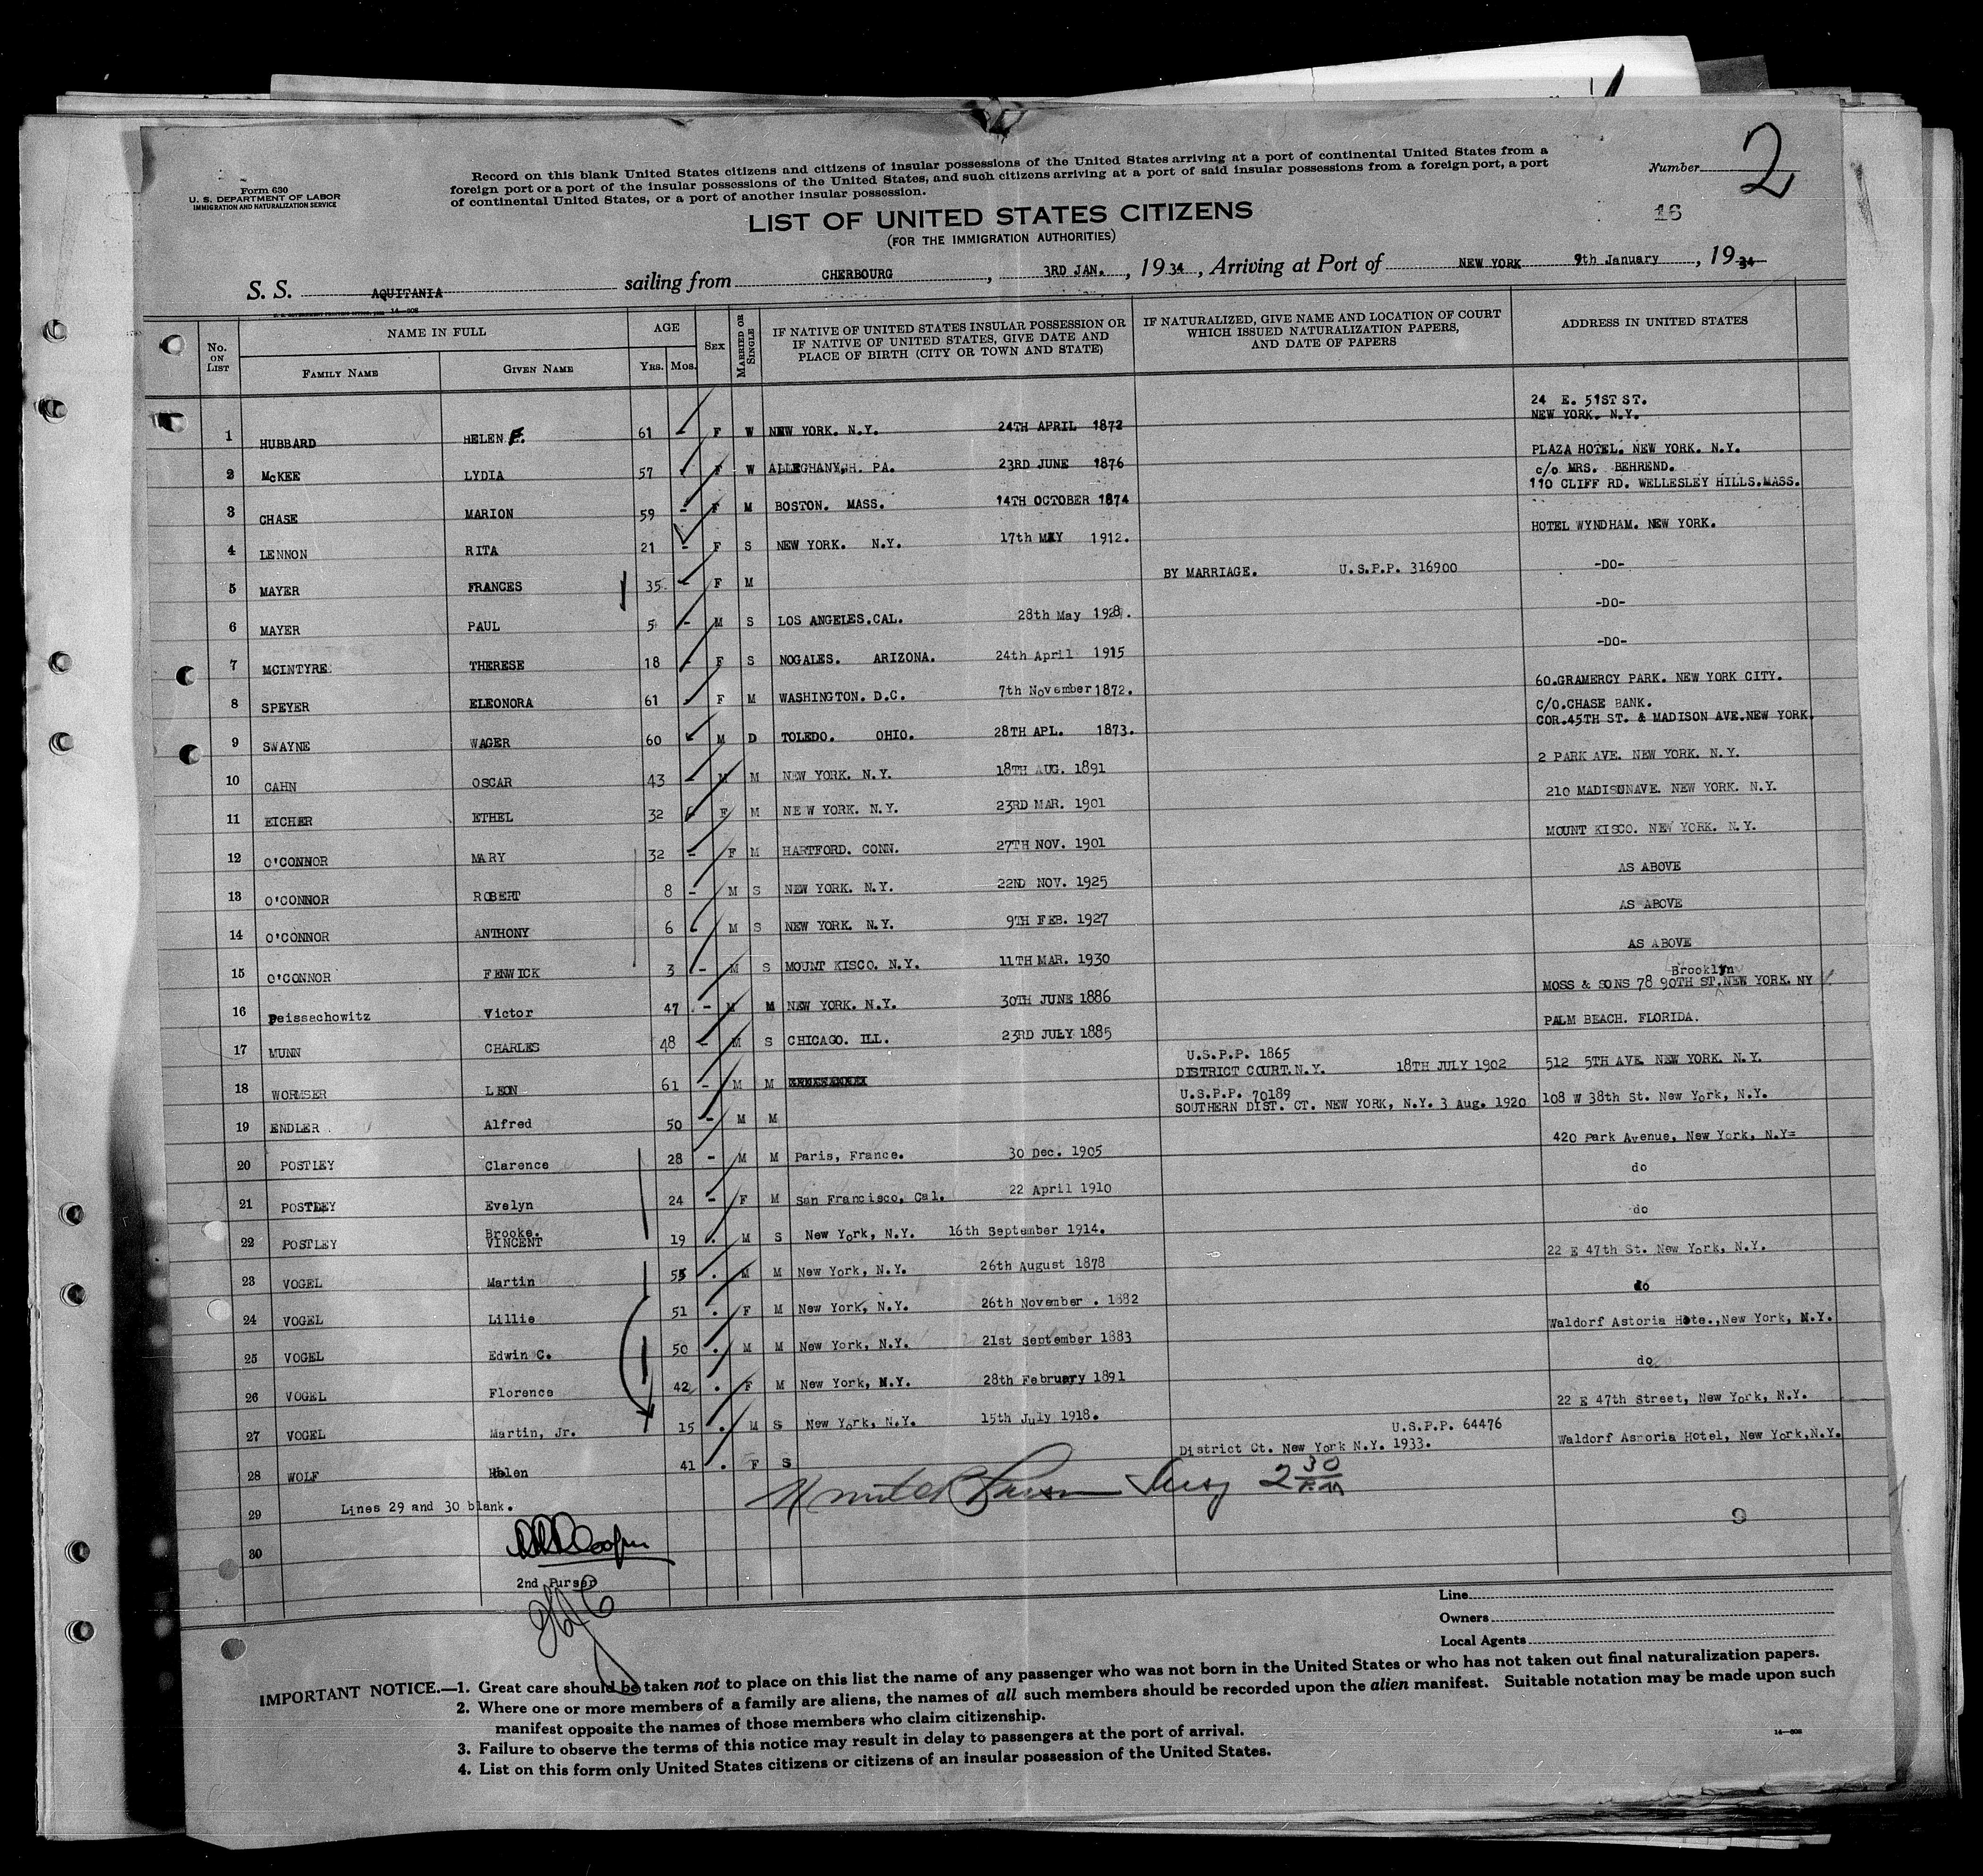 Number 2
Form 630
U. S. DEPARTMENT OF LABOR
IMMIGRATION AND NATURALIZATION SERVICE
Record on this blank United States citizens and citizens of insular possessions of the United States arriving at a port of continental United States from a
foreign port or a port of the insular possessions of the United States, and such citizens arriving at a port of said insular possessions from a foreign port, a port
of continental United States, or a port of another insular possession.
16
LIST OF UNITED STATES CITIZENS
(FOR THE IMMIGRATION AUTHORITIES)
S. S. AQUITANIA sailing from CHERBOURG, 3RD JAN., 19 34, Arriving at Port of NEW YORK 9th January, 19 34
14—608
No. ON LIST
NAME IN FULL
FAMILY NAME
GIVEN NAME
AGE
YRS. MOS.
SEX
MARRIED OR SINGLE
IF NATIVE OF UNITED STATES INSULAR POSSESSION OR
IF NATIVE OF UNITED STATES, GIVE DATE AND
PLACE OF BIRTH (CITY OR TOWN AND STATE)
IF NATURALIZED, GIVE NAME AND LOCATION OF COURT
WHICH ISSUED NATURALIZATION PAPERS,
AND DATE OF PAPERS
ADDRESS IN UNITED STATES
24 E. 51ST ST.
NEW YORK. N.Y.
1 HUBBARD HELEN F. 61 - F W NEW YORK. N.Y. 24TH APRIL 1872
PLAZA HOTEL. NEW YORK. N.Y.
2 McKEE LYDIA 57 F W ALLEGHANY,H. PA. 23RD JUNE 1876
c/o MRS. BEHREND.
110 CLIFF RD. WELLESLEY HILLS.MASS.
3 CHASE MARION 59 - F M BOSTON. MASS. 14TH OCTOBER 1874
HOTEL WYNDHAM. NEW YORK.
4 LENNON RITA 21 - F S NEW YORK. N.Y. 17th MAY 1912.
5 MAYER FRANCES 35 - F M BY MARRIAGE. U.S.P.P. 316900 -DO-
6 MAYER PAUL 5 - M S LOS ANGELES.CAL. 28th May 1928. -DO-
7 MCINTYRE THERESE 18 - F S NOGALES. ARIZONA. 24th April 1915 -DO-
60.GRAMERCY PARK. NEW YORK CITY.
8 SPEYER ELEONORA 61 F M WASHINGTON. D.C. 7th November 1872.
C/O.CHASE BANK.
COR.45TH ST. & MADISON AVE.NEW YORK.
9 SWAYNE WAGER 60 M D TOLEDO. OHIO. 28TH APL. 1873.
2 PARK AVE. NEW YORK. N.Y.
10 CAHN OSCAR 43 - M M NEW YORK. N.Y. 18TH AUG. 1891
210 MADISONAVE. NEW YORK. N.Y.
11 EICHER ETHEL 32 F M NEW YORK. N.Y. 23RD MAR. 1901
MOUNT KISCO. NEW YORK. N.Y.
12 O'CONNOR MARY 32 - F M HARTFORD. CONN. 27TH NOV. 1901
AS ABOVE
13 O'CONNOR ROBERT 8 - M S NEW YORK. N.Y. 22ND NOV. 1925
AS ABOVE
14 O'CONNOR ANTHONY 6 - M S NEW YORK. N.Y. 9TH FEB. 1927
AS ABOVE
15 O'CONNOR FENWICK 3 - M S MOUNT KISCO. N.Y. 11TH MAR. 1930
Brooklyn
MOSS & SONS 78 90TH ST.NEW YORK. NY
16 Peissachowitz Victor 47 - M M NEW YORK. N.Y. 30TH JUNE 1886
PALM BEACH. FLORIDA.
17 MUNN CHARLES 48 - M S CHICAGO. ILL. 23RD JULY 1885
U.S.P.P. 1865
DISTRICT COURT.N.Y. 18TH JULY 1902 512 5TH AVE. NEW YORK. N.Y.
18 WORMSER LEON 61 - M M
U.S.P.P. 70189
SOUTHERN DIST. CT. NEW YORK, N.Y. 3 Aug. 1920 108 W 38th St. New York, N.Y.
19 ENDLER Alfred 50 - M M
420 Park Avenue, New York, N.Y=
20 POSTLEY Clarence 28 - M M Paris, France. 30 Dec. 1905
do
21 POSTLEY Evelyn 24 - F M San Francisco, Cal. 22 April 1910
do
22 POSTLEY Brooke.
VINCENT 19 . M S New York, N.Y. 16th September 1914.
22 E 47th St. New York, N.Y.
23 VOGEL Martin 55 . M M New York, N.Y. 26th August 1878
do
24 VOGEL Lillie 51 . F M New York, N.Y. 26th November . 1882
Waldorf Astoria Hote.,New York, N.Y.
25 VOGEL Edwin C. 50 . M M New York, N.Y. 21st September 1883
do
26 VOGEL Florence 42 . F M New York, N.Y. 28th February 1891
22 E 47th Street, New York, N.Y.
27 VOGEL Martin, Jr. 15 . M S New York, N.Y. 15th July 1918.
U.S.P.P. 64476
District Ct. New York N.Y. 1933. Waldorf Asroria Hotel, New York,N.Y.
28 WOLF Helen 41 . F S
2 30 P.M
29 Lines 29 and 30 blank.
9
30
2nd Purser
Line
Owners
Local Agents
IMPORTANT NOTICE.—1. Great care should be taken not to place on this list the name of any passenger who was not born in the United States or who has not taken out final naturalization papers.
2. Where one or more members of a family are aliens, the names of all such members should be recorded upon the alien manifest. Suitable notation may be made upon such
manifest opposite the names of those members who claim citizenship.
3. Failure to observe the terms of this notice may result in delay to passengers at the port of arrival.
4. List on this form only United States citizens or citizens of an insular possession of the United States.
14—608